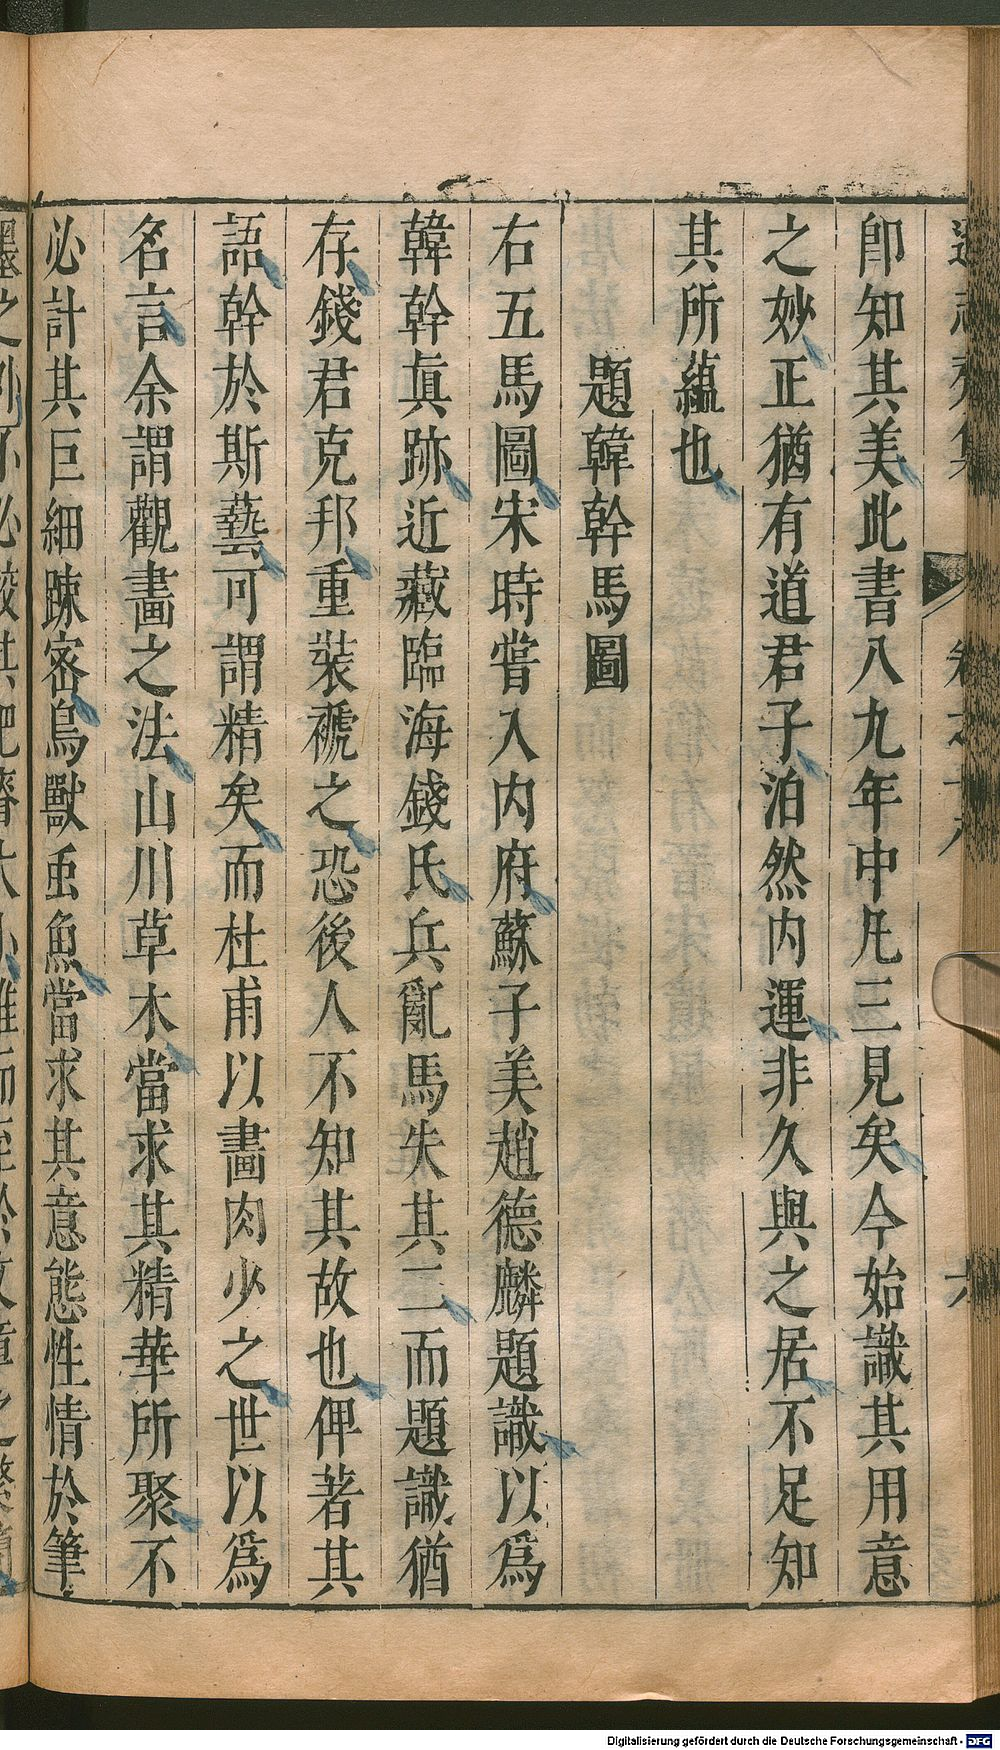 遜志齋集 卷之十八 六
卽知其美此書八九年中凡三見矣今始識其用意
之妙正猶有道君子泊然内運非久與之居不足知
其所蘊也
題韓幹馬圖
右五馬圖宋時嘗入内府蘇子美趙德麟題識以爲
韓幹眞跡近藏臨海錢氏兵亂馬失其二而題識猶
存錢君克邦重裝褫之恐後人不知其故也俾著其
語幹於斯藝可謂精矣而杜甫以畫肉少之世以爲
名言余謂觀畫之法山川草木當求其精華所聚不
必計其巨細踈密鳥獸䖝魚當求其意態性情於筆
Digitalisierung gefördert durch die Deutsche Forschungsgemeinschaft - DFG